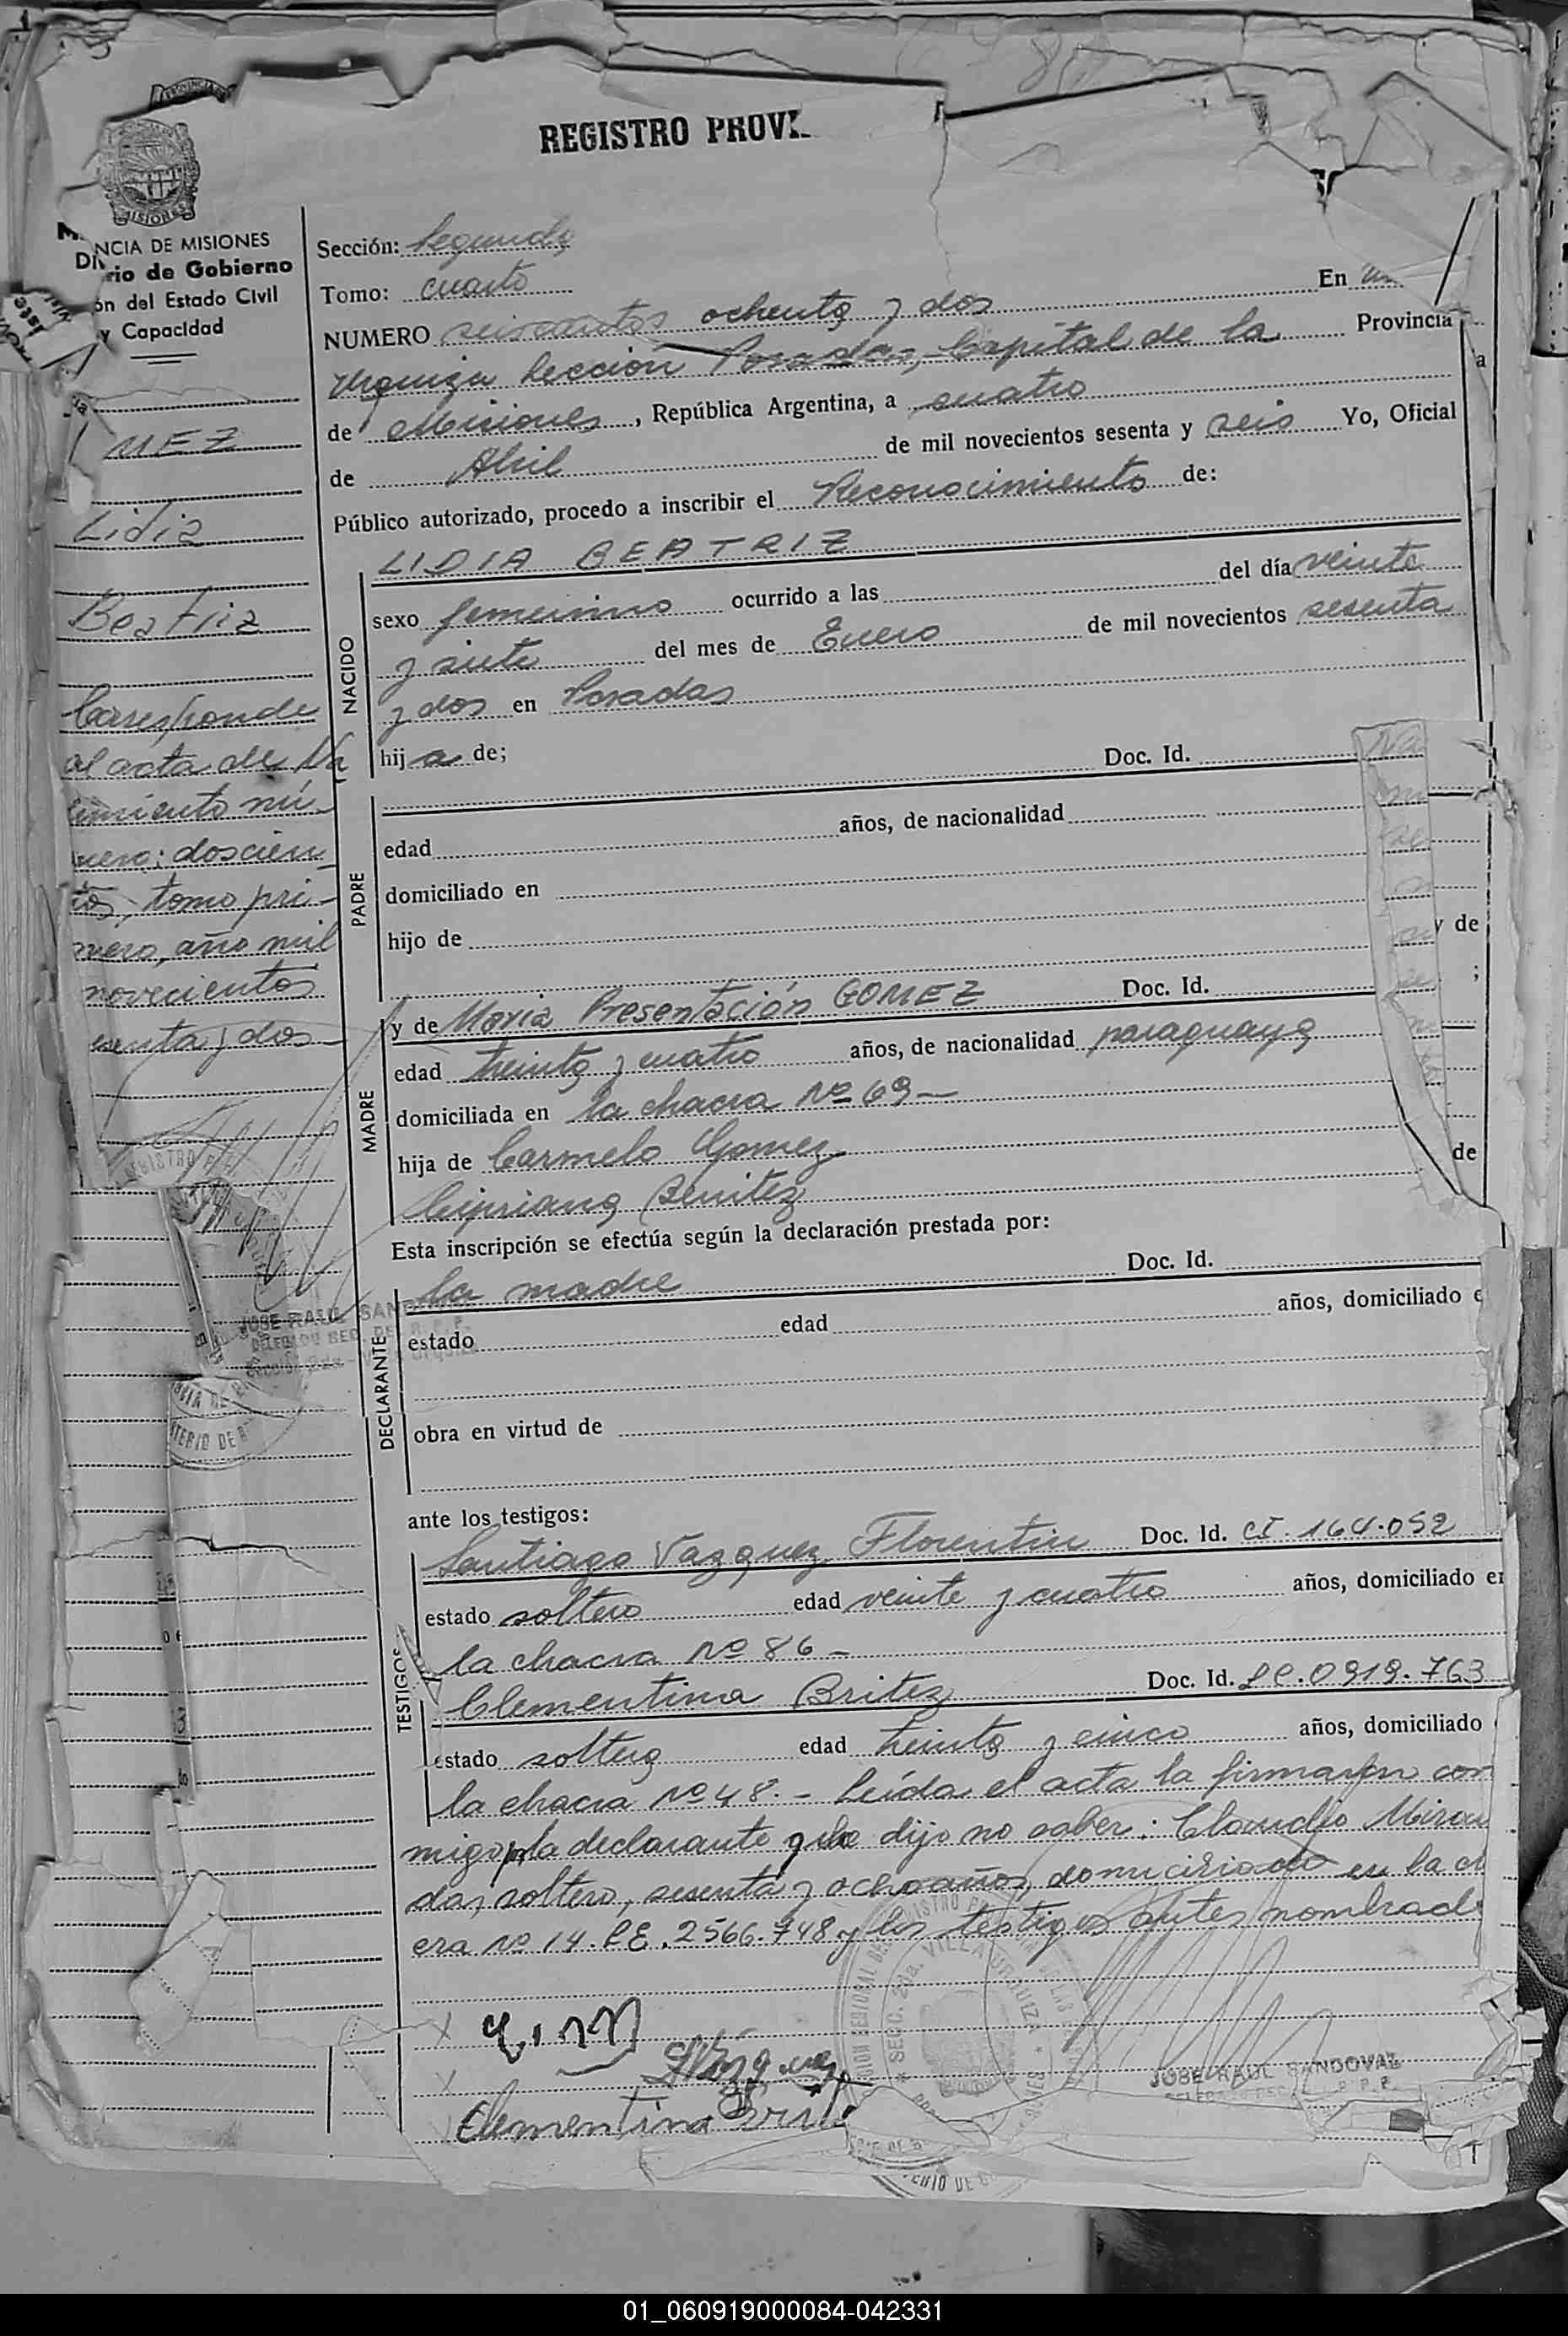 REGISTRO PROV
MISIONES
NCIA DE MISIONES
rio de Gobierno
ón del Estado Civil
y Capacidad
MEZ
Lidia
Beatriz
Corresponde
al acta de Na
cimiento nú-
mero: doscien
tos, tomo pri-
mero, año mil
novecientos
senta y dos-
JOSE RAUL SANDOVAL
Sección: Segunda
Tomo: cuarto
NUMERO seiscientos ochenta y dos En
Urquiza Sección Posadas, Capital de la Provincia
de Misiones, República Argentina, a cuatro
de Abril de mil novecientos sesenta y seis Yo, Oficial
Público autorizado, procedo a inscribir el Reconocimiento de:
NACIDO
LIDIA BEATRIZ
sexo femenino ocurrido a las del día veinte
y siete del mes de Enero de mil novecientos sesenta
y dos en Posadas
hij a de; Doc. Id.
PADRE
edad años, de nacionalidad
domiciliado en
hijo de y de
;
MADRE
y de Maria Presentación GOMEZ Doc. Id.
edad treinta y cuatro años, de nacionalidad paraguaya
domiciliada en la chacra Nº 69-
hija de Carmelo Gomez de
Cipriana Benitez
Esta inscripción se efectúa según la declaración prestada por:
DECLARANTE
la madre Doc. Id.
estado edad años, domiciliado e
obra en virtud de
ante los testigos:
TESTIGOS
Santiago Vazquez Florentin Doc. Id. CI. 164.052
estado soltero edad veinte y cuatro años, domiciliado en
la chacra Nº 86-
Clementina Britez Doc. Id. LC.0919.763
estado soltera edad treinta y cinco años, domiciliado
la chacra Nº 48.- Leída el acta la firmaron con
migo p/la declarante que dijo no saber: Claudio Miran
da, soltero, sesenta y ocho años, domiciliado en la ch
cra Nº 14. LE. 2566.748 y los testigos antes nombrad
SECC. 2da. VILLA URQUIZA
Vázquez
Clementina Brit
JOSE RAUL SANDOVAL
01_060919000084-042331